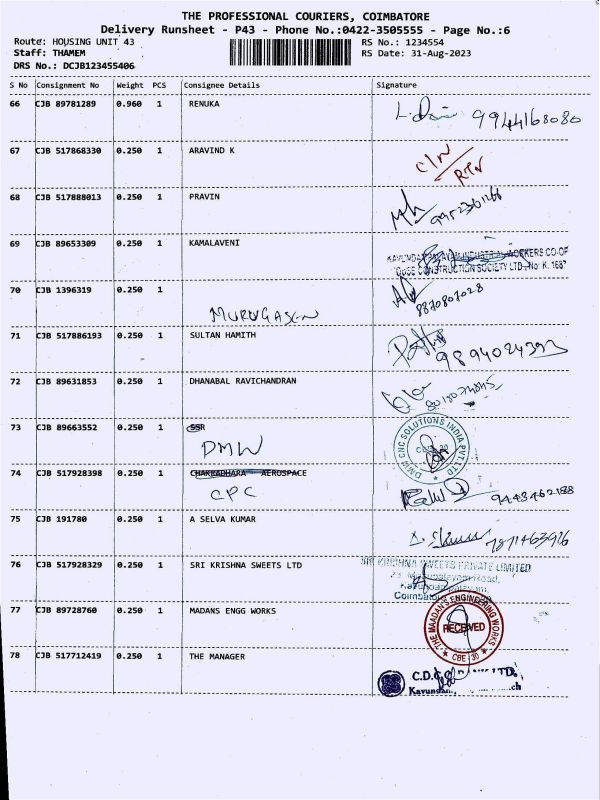 THE PROFESSIONAL COURIERS, COIMBATORE
Delivery Runsheet - P43 - Phone No.:0422-3505555 - Page No.:6
Route: HOUSING UNIT 43 RS No.: 1234554
Staff: THAMEM RS Date: 31-Aug-2023
DRS No.: DCJB123455406
S No Consignment No Weight PCS Consignee Details Signature
66 CJB 89781289 0.960 1 RENUKA
9944168080
67 CJB 517868330 0.250 1 ARAVIND K
C/N
RTN
68 CJB 517888013 0.250 1 PRAVIN
69 CJB 89653309 0.250 1 KAMALAVENI
INDUSTRIAL WORKERS CO-OP
HOUSE CONSTRUCTION SOCIETY LTD., No: K. 1687
70 CJB 1396319 0.250 1
MURUGASEN
8870807028
71 CJB 517886193 0.250 1 SULTAN HAMITH
9894024393
72 CJB 89631853 0.250 1 DHANABAL RAVICHANDRAN
73 CJB 89663552 0.250 1 SSR
DMW
DMW CNC SOLUTIONS INDIA PVT. LTD
CBE 30
74 CJB 517928398 0.250 1 CHAKRADHARA AEROSPACE
CPC
9443462188
75 CJB 191780 0.250 1 A SELVA KUMAR
7871463926
76 CJB 517928329 0.250 1 SRI KRISHNA SWEETS LTD
SRI KRISHNA SWEETS PRIVATE LIMITED
77 CJB 89728760 0.250 1 MADANS ENGG WORKS
THE MAADANS ENGINEERING WORKS
RECEIVED
CBE 30
78 CJB 517712419 0.250 1 THE MANAGER